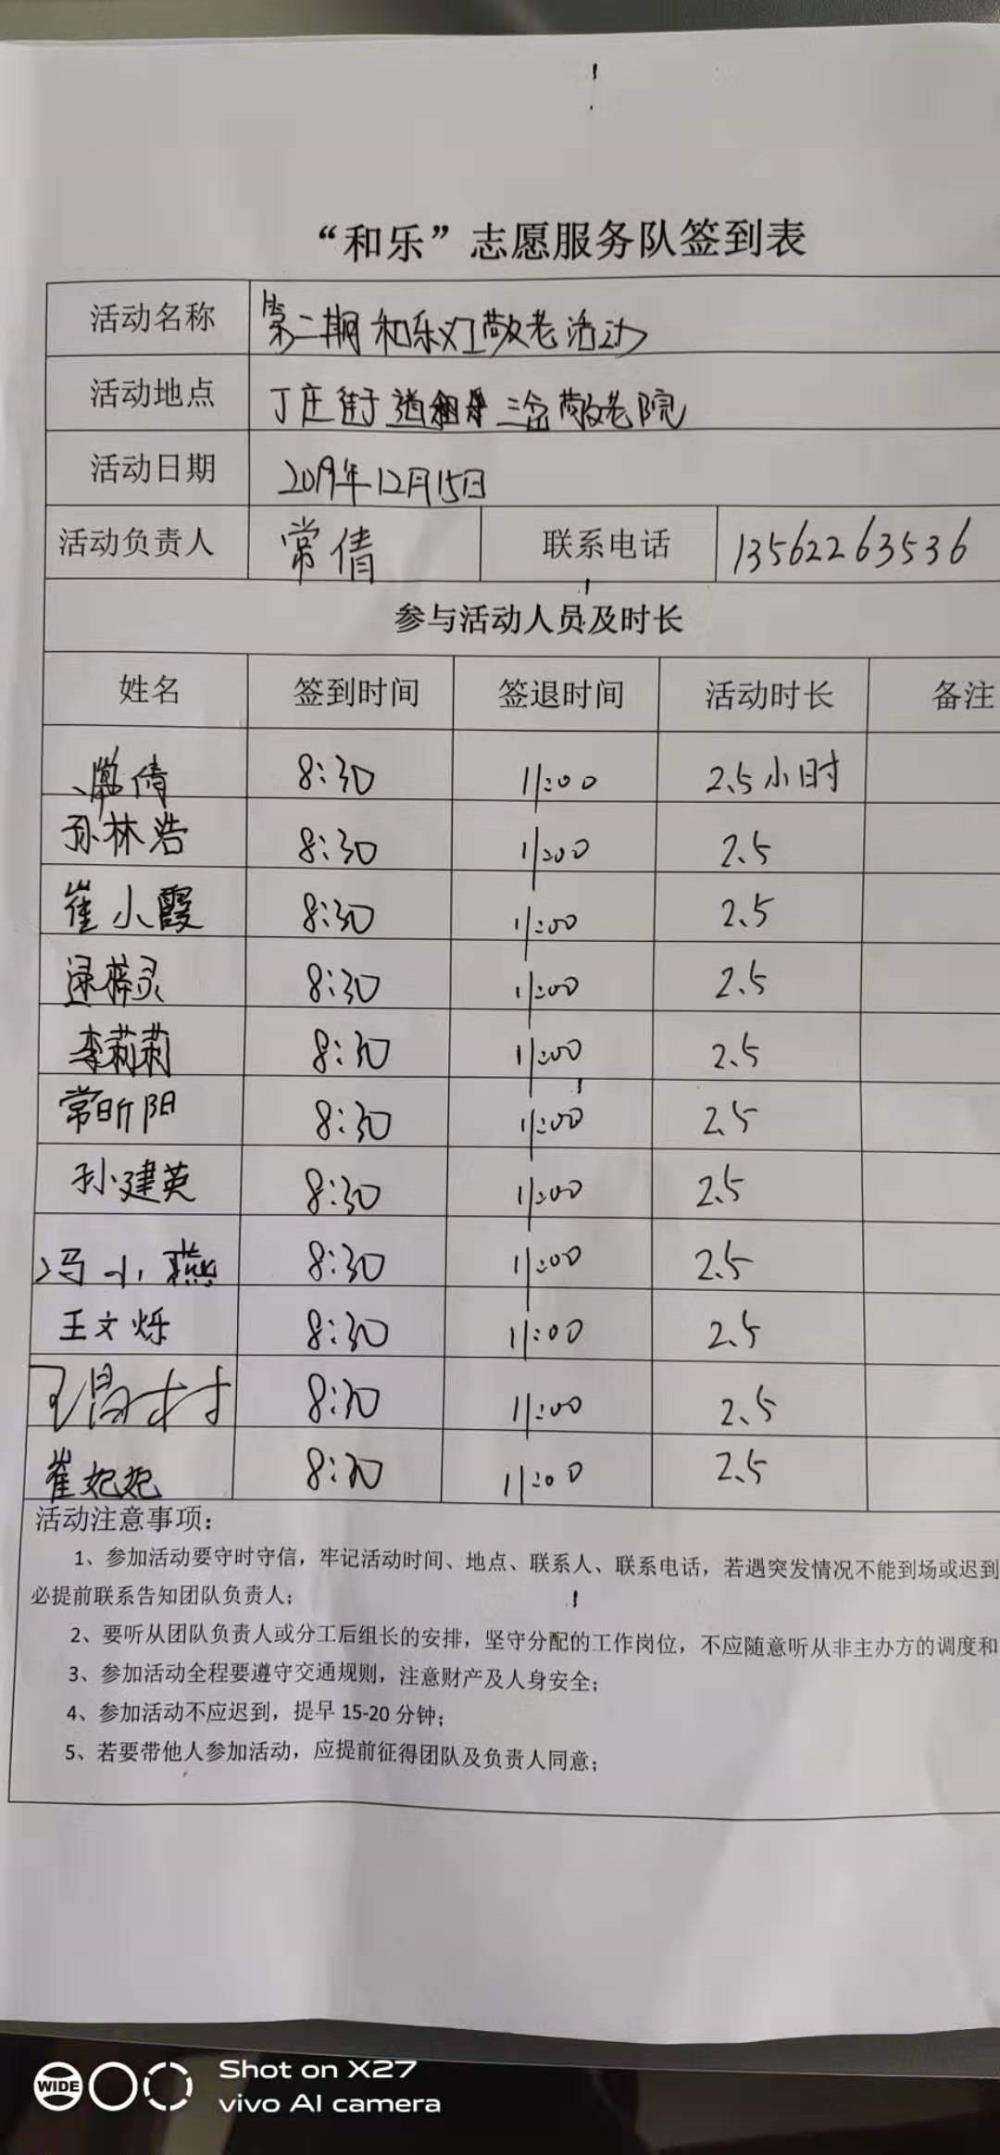 “和乐”志愿服务队签到表
活动名称 第二期和乐义工敬老活动
活动地点 丁庄街道 三岔敬老院
活动日期 2019年12月15日
活动负责人 常倩 联系电话 13562263536
参与活动人员及时长
姓名 签到时间 签退时间 活动时长 备注
常倩 8:30 11:00 2.5小时
孙林浩 8:30 11:00 2.5
崔小霞 8:30 11:00 2.5
8:30 11:00 2.5
李莉莉 8:30 11:00 2.5
常昕阳 8:30 11:00 2.5
孙建英 8:30 11:00 2.5
冯小燕 8:30 11:00 2.5
王文烁 8:30 11:00 2.5
王 8:30 11:00 2.5
崔妃妃 8:30 11:00 2.5
活动注意事项：
1、参加活动要守时守信，牢记活动时间、地点、联系人、联系电话，若遇突发情况不能到场或迟到
必提前联系告知团队负责人；
2、要听从团队负责人或分工后组长的安排，坚守分配的工作岗位，不应随意听从非主办方的调度和
3、参加活动全程要遵守交通规则，注意财产及人身安全；
4、参加活动不应迟到，提早 15-20 分钟；
5、若要带他人参加活动，应提前征得团队及负责人同意；
WIDE
Shot on X27
vivo AI camera